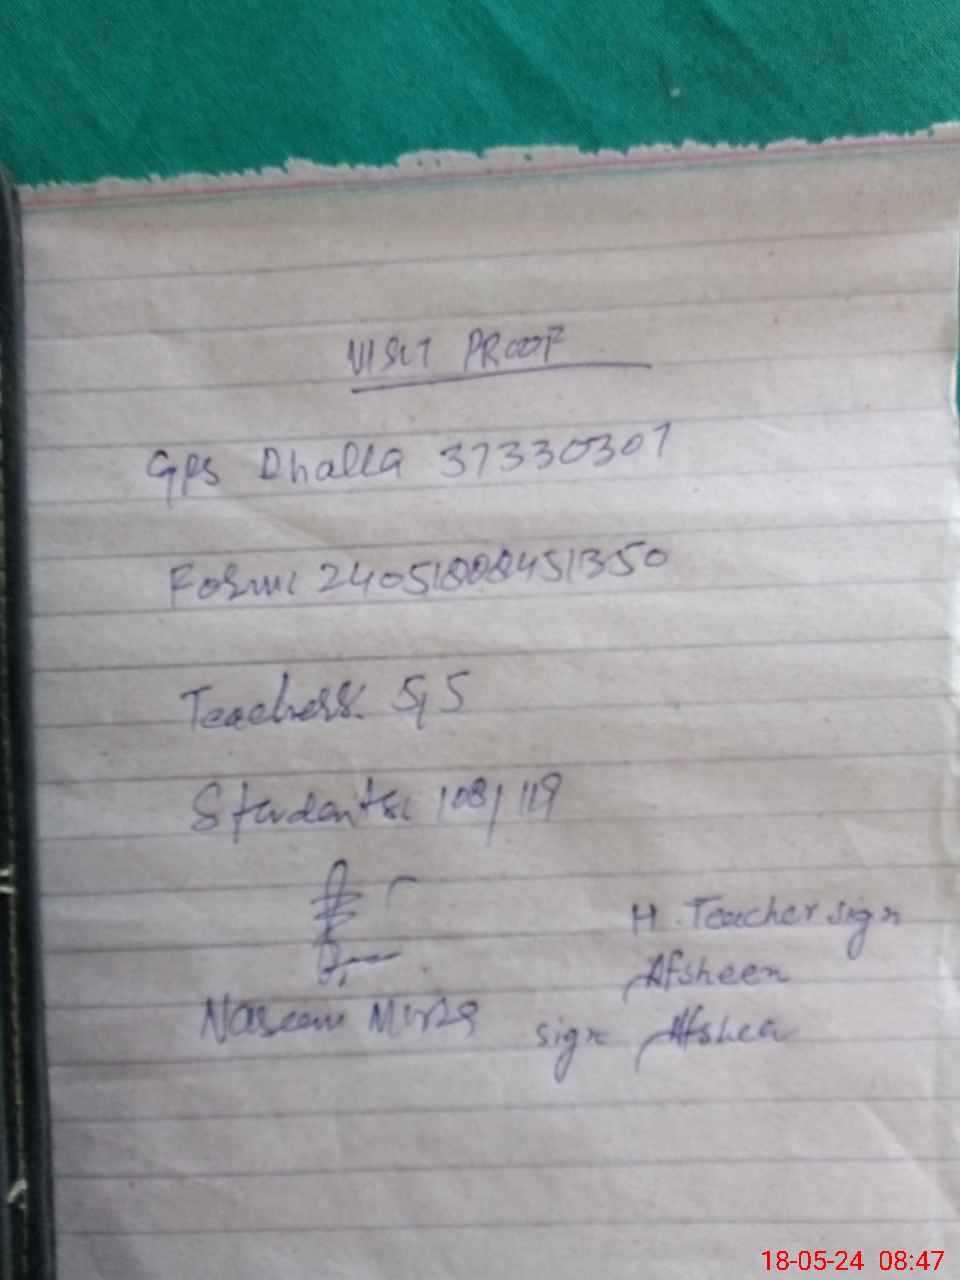 VISIT PROOF
GPS Dhalla 37330307
Form: 24051808451350
Teachers: 5/5
Students: 108/119
H. Teacher sign
Afsheen
Naseem Mirza
sign Afsheen
18-05-24 08:47